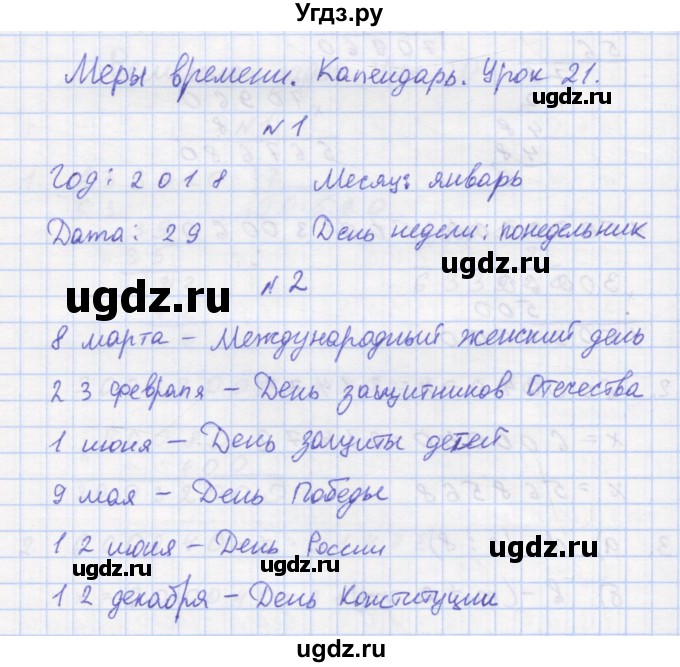 Угдз.ру
Меры времени. Календарь. Урок 21.
ugdz.ru
№1
Год: 2018 Месяц: январь
Дата: 29 День недели: понедельник
ugdz.ru
ugdz.ru
№2
8 марта – Международный женский день
23 февраля – День защитников Отечества
1 июня – День защиты детей
9 мая – День Победы
12 июня – День России
ugdz.ru
ugdz.ru
ugdz.ru
12 декабря – День Конституции
ugdz.ru